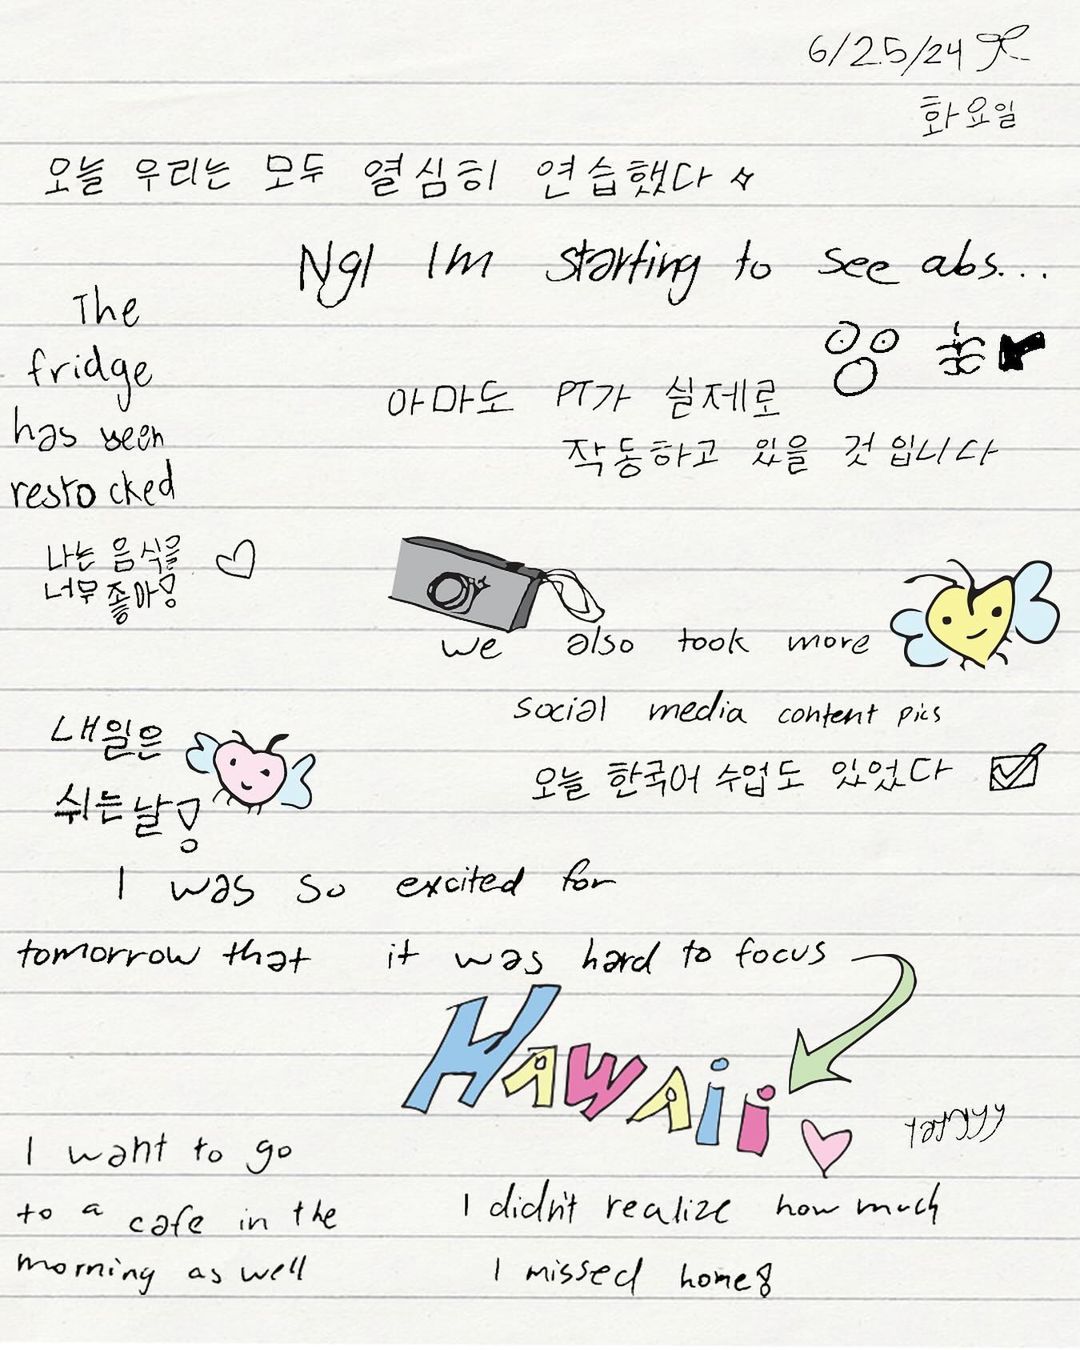 6/25/24
화요일
오늘 우리는 모두 열심히 연습했다
Ngl Im starting to see abs...
The
fridge
has been
restocked
아마도 PT가 실제로
작동하고 있을 것입니다
나는 음식을
너무 좋아!
we also took more
social media content pics
오늘 한국어 수업도 있었다
내일은
쉬는날!
I was so excited for
tomorrow that it was hard to focus
HAWAii
yayyyy
I want to go
to a cafe in the
morning as well
I didn't realize how much
I missed home